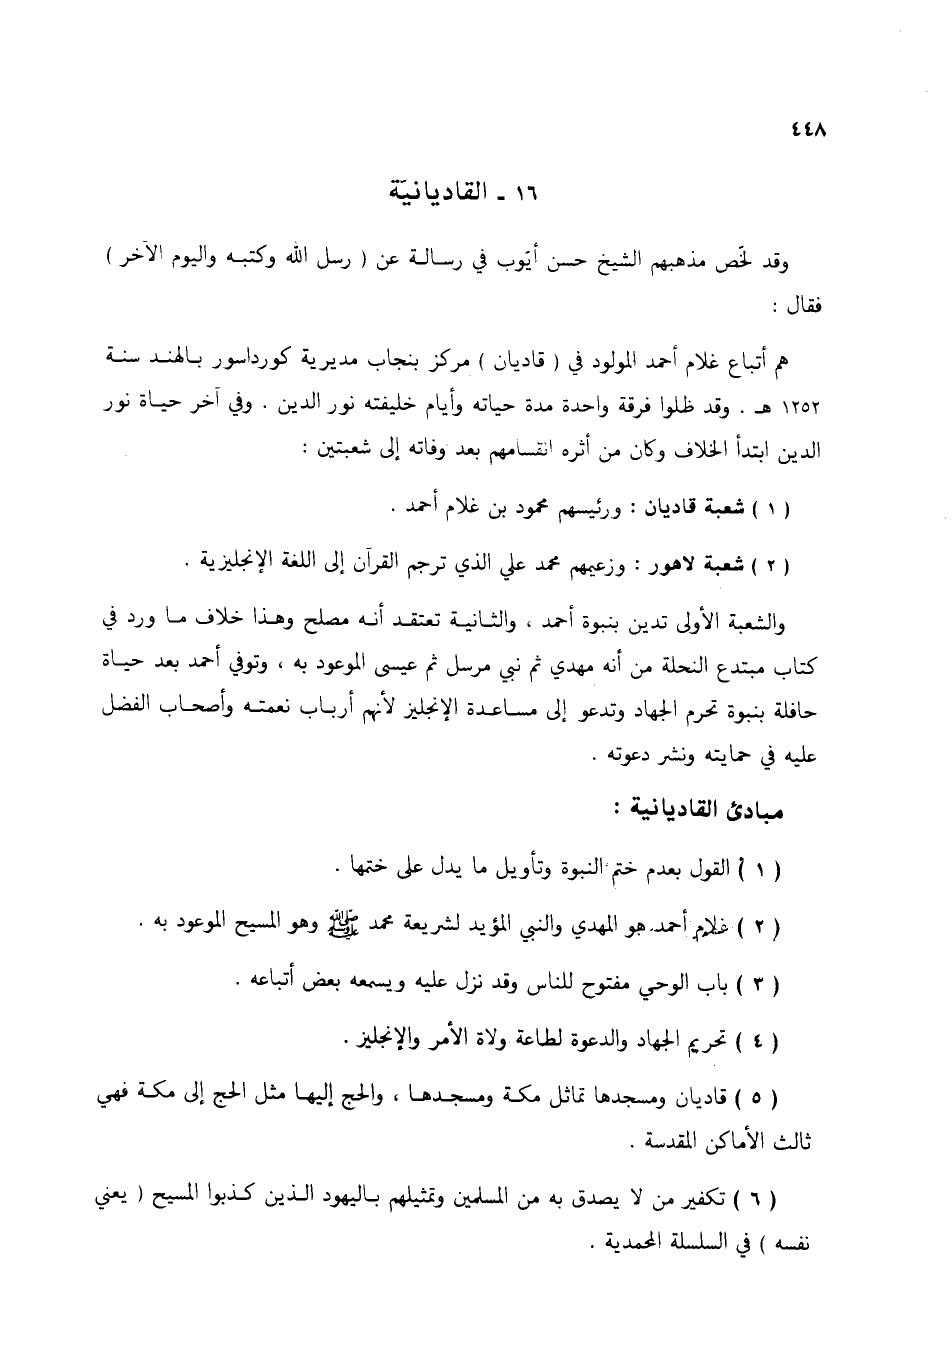 ٤٤٨
١٦ - القاديانيّة
وقد لخّص مذهبهم الشيخ حسن أيّوب في رسالة عن ( رسل الله وكتبه واليوم الآخر )
فقال :
هم أتباع غلام أحمد المولود في ( قاديان ) مركز بنجاب مديرية كورداسور بالهند سنة
١٢٥٢ هـ . وقد ظلوا فرقة واحدة مدة حياته وأيام خليفته نور الدين . وفي آخر حياة نور
الدين ابتدأ الخلاف وكان من أثره انقسامهم بعد وفاته إلى شعبتين :
( ١ ) شعبة قاديان : ورئيسهم محمود بن غلام أحمد .
( ٢ ) شعبة لاهور : وزعيمهم محمد علي الذي ترجم القرآن إلى اللغة الإنجليزية .
والشعبة الأولى تدين بنبوة أحمد ، والثانية تعتقد أنه مصلح وهذا خلاف ما ورد في
كتاب مبتدع النحلة من أنه مهدي ثم نبي مرسل ثم عيسى الموعود به ، وتوفي أحمد بعد حياة
حافلة بنبوة تحرم الجهاد وتدعو إلى مساعدة الإنجليز لأنهم أرباب نعمته وأصحاب الفضل
عليه في حمايته ونشر دعوته .
مبادئ القاديانية :
( ١ ) القول بعدم ختم النبوة وتأويل ما يدل على ختمها .
( ٢ ) غلام أحمد هو المهدي والنبي المؤيد لشريعة محمد ﷺ وهو المسيح الموعود به .
( ٣ ) باب الوحي مفتوح للناس وقد نزل عليه ويسمعه بعض أتباعه .
( ٤ ) تحريم الجهاد والدعوة لطاعة ولاة الأمر والإنجليز .
( ٥ ) قاديان ومسجدها تماثل مكة ومسجدها ، والحج إليها مثل الحج إلى مكة فهي
ثالث الأماكن المقدسة .
( ٦ ) تكفير من لا يصدق به من المسلمين وتمثيلهم باليهود الذين كذبوا المسيح ( يعني
نفسه ) في السلسلة المحمدية .